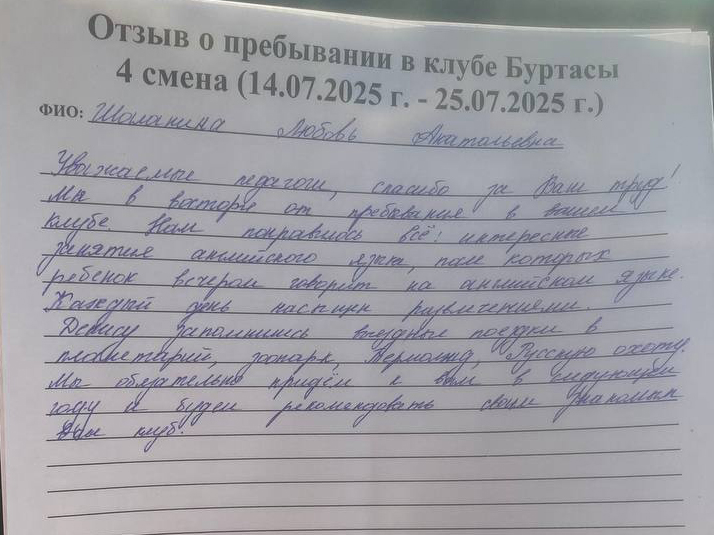 Отзыв о пребывании в клубе Буртасы
4 смена (14.07.2025 г. - 25.07.2025 г.)
ФИО: Шаланина Любовь Анатольевна
Уважаемые педагоги, спасибо за Ваш труд!
Мы в восторге от пребывания в вашем
клубе. Нам понравилось всё: интересные
занятия английского языка, после которых
ребенок вечером говорит на английском языке.
Каждый день насыщен развлечениями.
Денису запомнились выездные поездки в
планетарий, зоопарк, Термолэнд, Русскую охоту.
Мы обязательно придём к вам в следующем
году и будем рекомендовать своим знакомым
Ваш клуб.